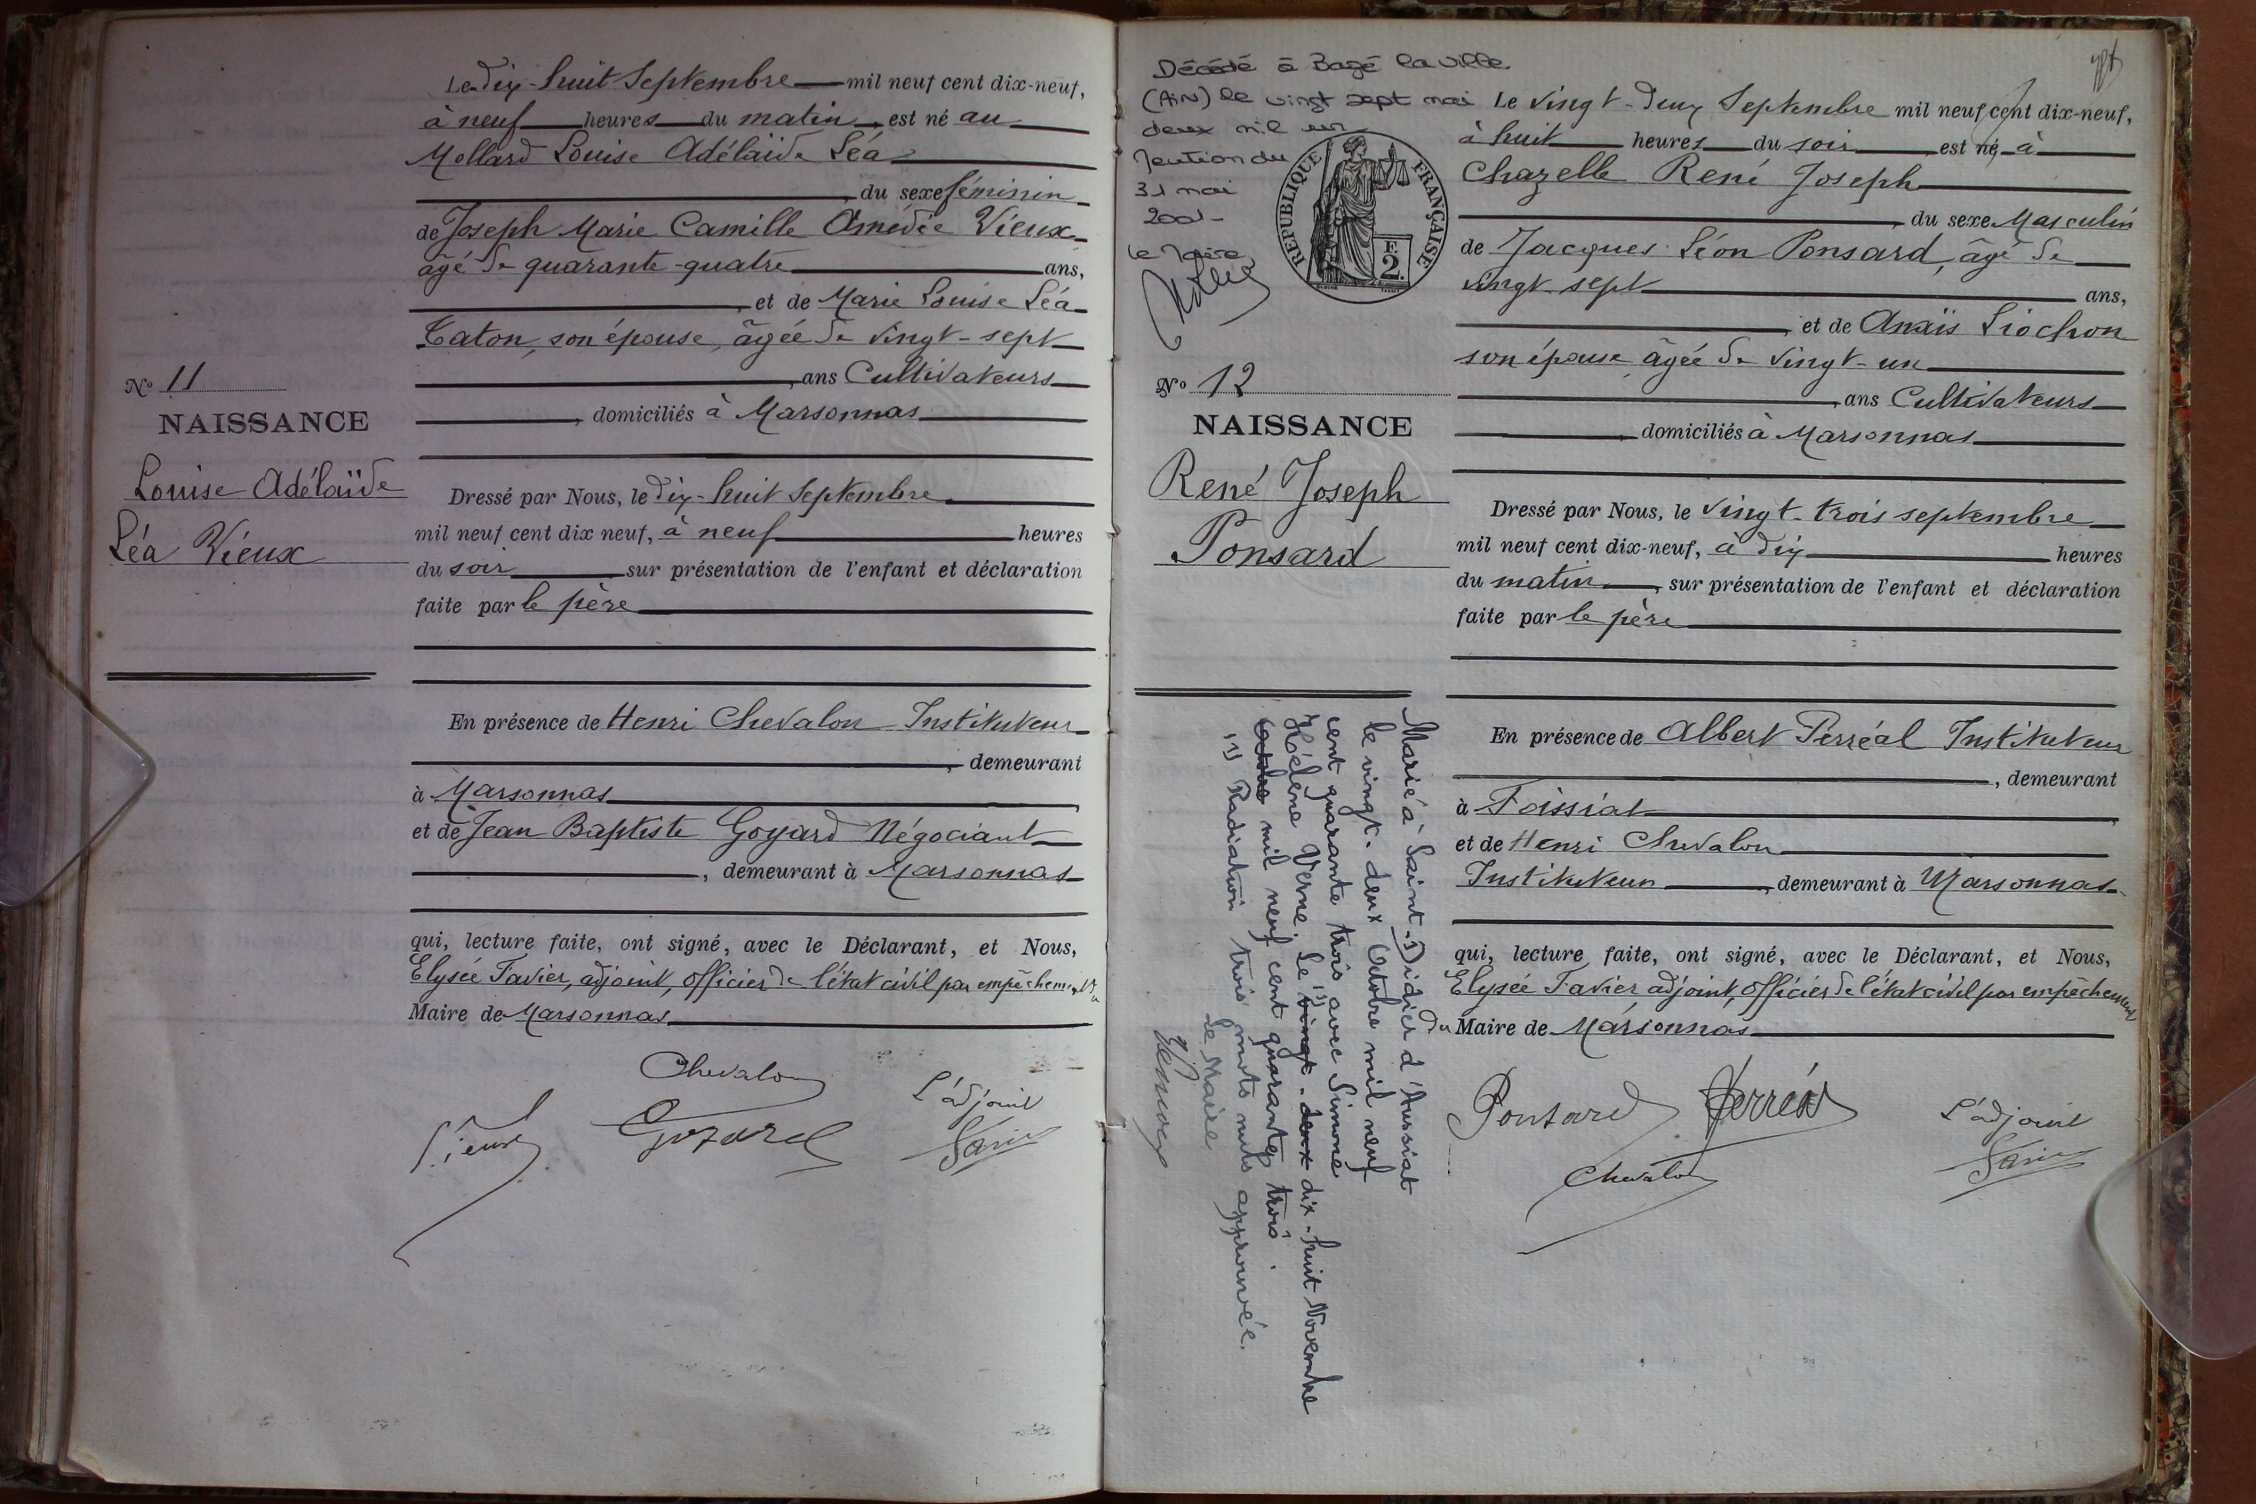 Le dix-huit Septembre mil neuf cent dix-neuf,
à neuf heures du matin, est né au
Mollard Louise Adélaïde Léa
, du sexe féminin
de Joseph Marie Camille Amédée Vieux
âgé de quarante-quatre ans,
, et de Marie Louise Léa
Caton, son épouse, âgée de vingt-sept
, ans Cultivateurs
, domiciliés à Marsonnas
Nº 11
NAISSANCE
Louise Adélaïde
Léa Vieux
Dressé par Nous, le dix-huit Septembre
mil neuf cent dix neuf, à neuf heures
du soir sur présentation de l'enfant et déclaration
faite par le père
En présence de Henri Chevalon Instituteur
, demeurant
à Marsonnas
et de Jean Baptiste Goyard Négociant
, demeurant à Marsonnas
qui, lecture faite, ont signé, avec le Déclarant, et Nous,
Elysée Favier, adjoint, officier de l'état civil par empêchement du
Maire de Marsonnas
Chevalon
L'adjoint
Vieux
Goyard
Favier
Décédé à Bagé la ville
(AiN) le vingt sept mai
deux mil un
31 mai
2001-
le Maire
RÉPUBLIQUE FRANÇAISE
E
2
Le vingt-deux Septembre mil neuf cent dix-neuf,
à huit heures du soir, est né à
Chazelle René Joseph
, du sexe Masculin
de Jacques Léon Ponsard, âgé de
vingt-sept ans,
, et de Anaïs Liochon
son épouse âgée de vingt-un
, ans Cultivateurs
domiciliés à Marsonnas
Nº 12
NAISSANCE
René Joseph
Ponsard
Dressé par Nous, le vingt-trois septembre
mil neuf cent dix-neuf, à dix heures
du matin, sur présentation de l'enfant et déclaration
faite par le père
En présence de Albert Perréal Instituteur
, demeurant
à Foissiat
et de Henri Chevalon
Instituteur, demeurant à Marsonnas
qui, lecture faite, ont signé, avec le Déclarant, et Nous,
Elysée Favier, adjoint, officier de l'état civil par empêchement
du Maire de Marsonnas
Ponsard Perréal
L'adjoint
Chevalon
Favier
Marié à Saint-Didier d'Aussiat
le vingt-deux Octobre mil neuf
cent quarante trois avec Simone
Hélène Verne. Le (1) vingt-deux dix-huit Novembre
Octobre mil neuf cent quarante trois.
(1) Radiation trois mots nuls approuvée.
Le Maire